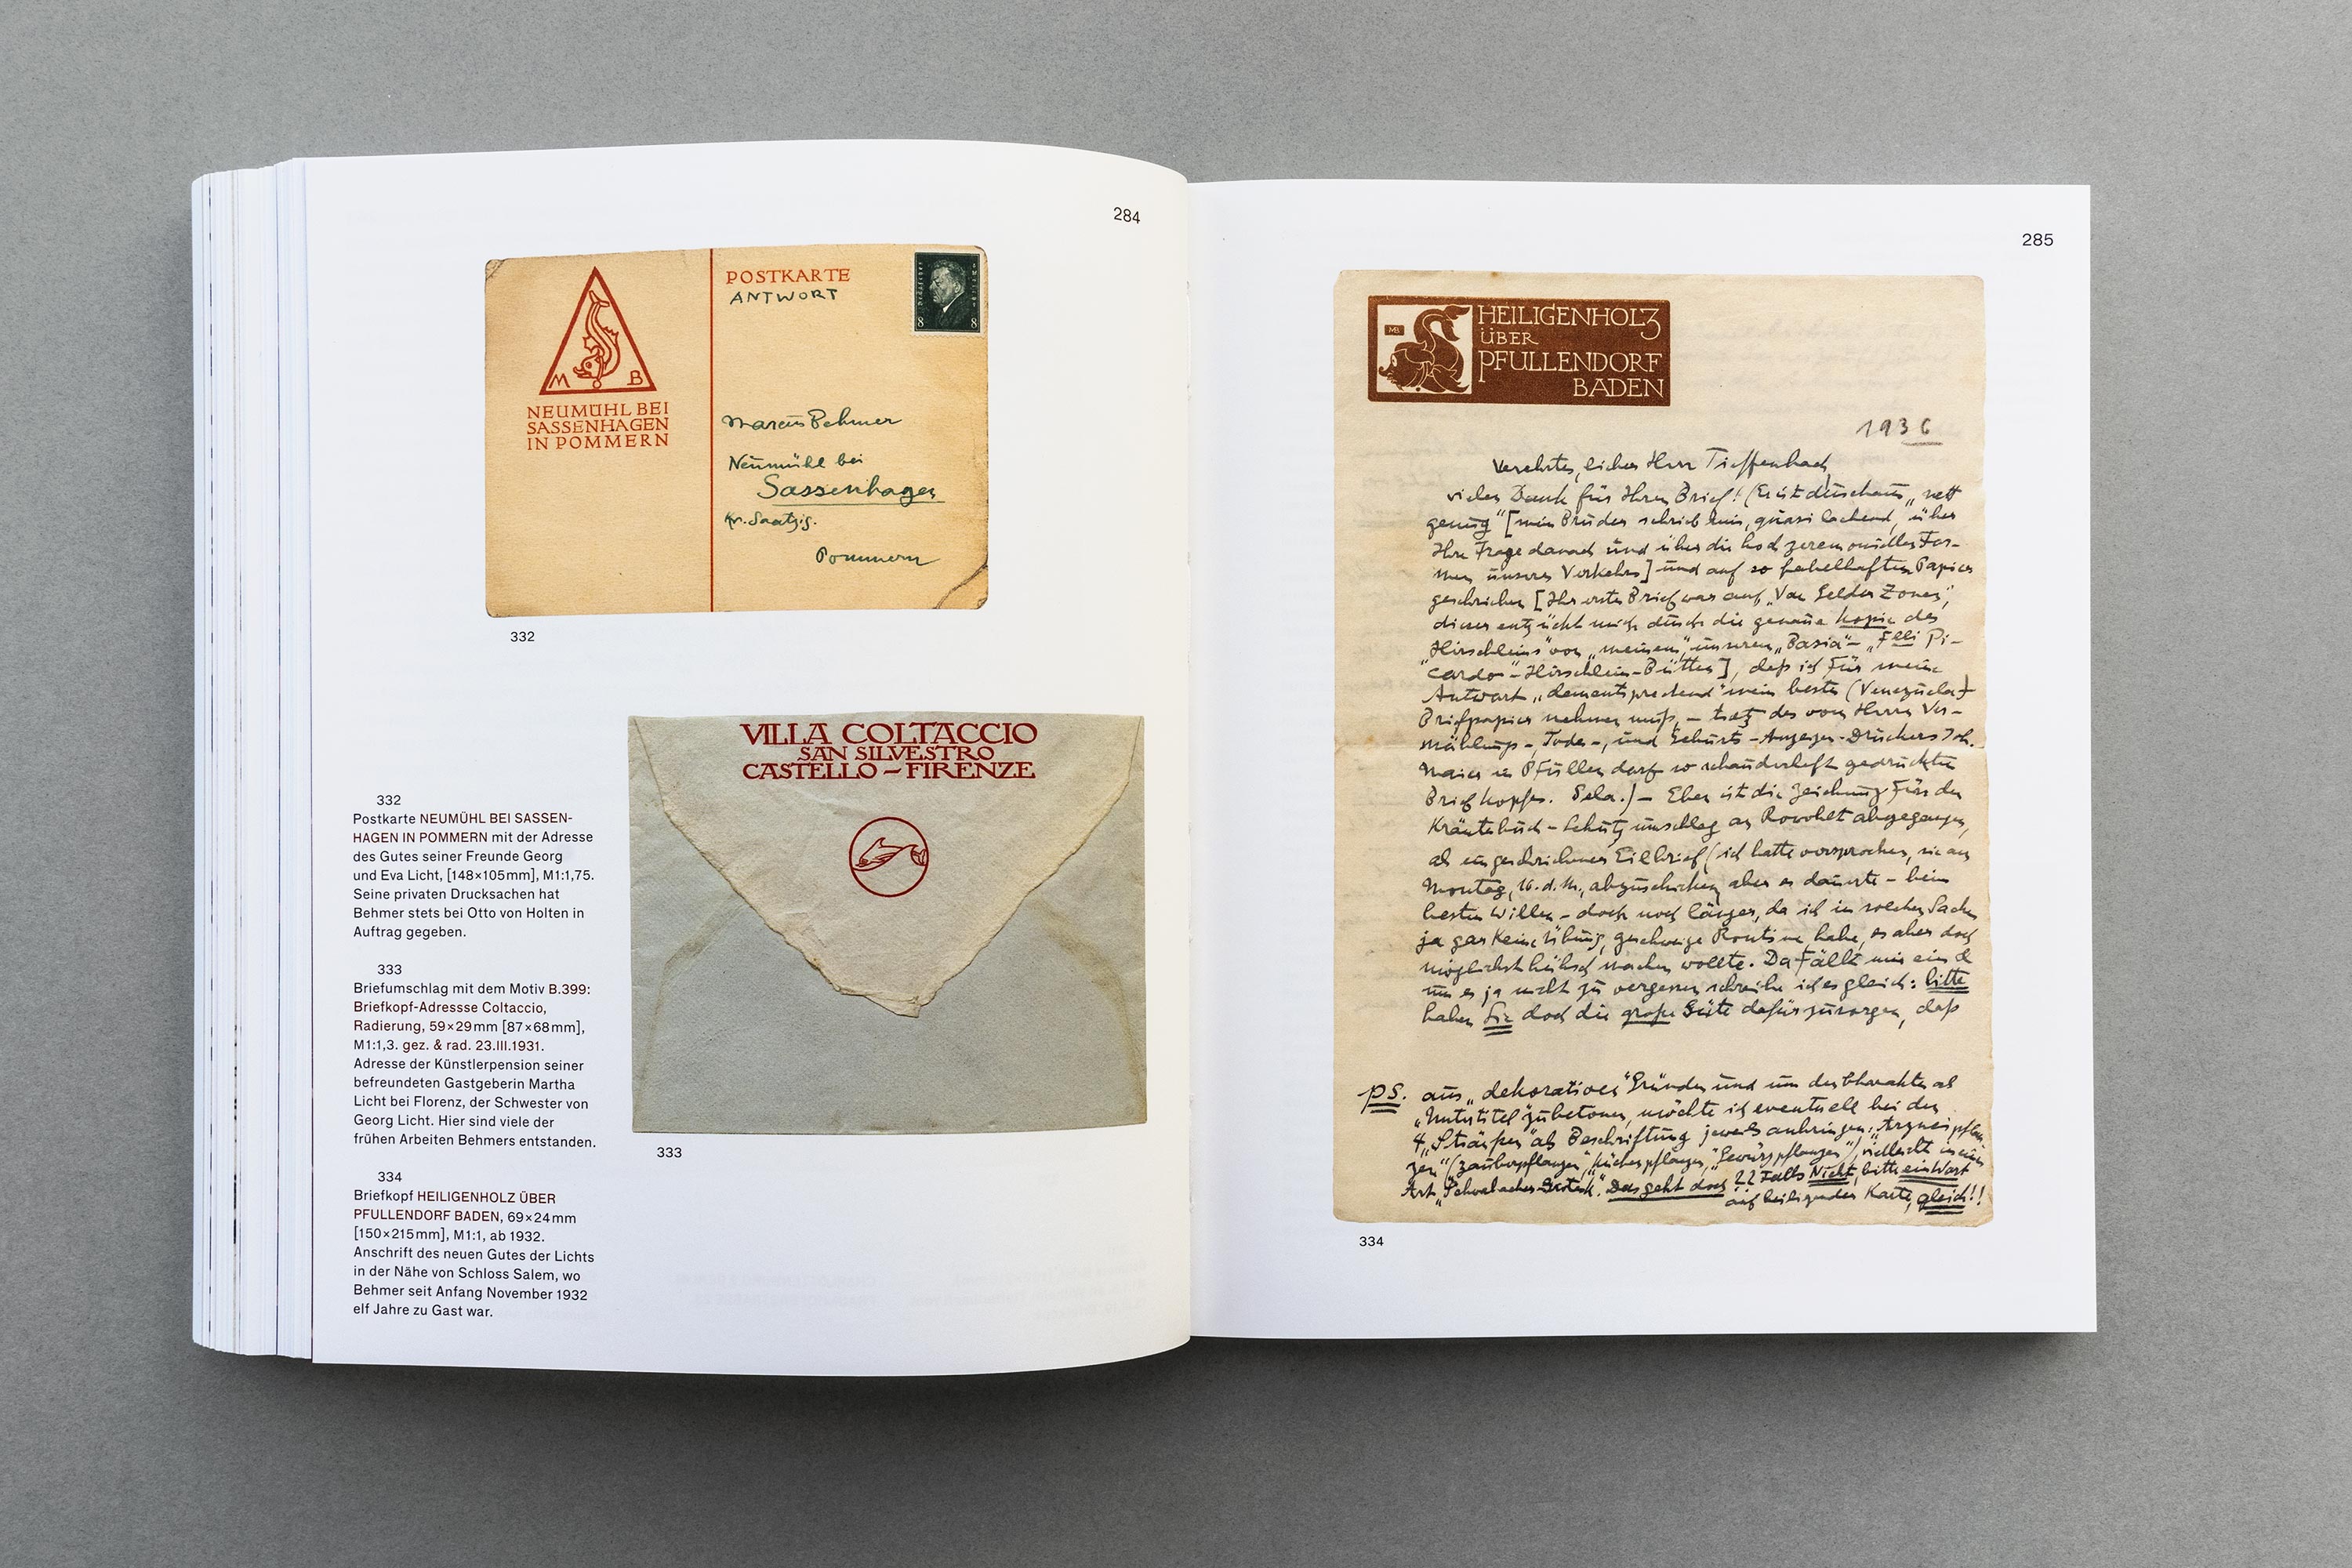 284
POSTKARTE
ANTWORT
8 8
M B
NEUMÜHL BEI
SASSENHAGEN
IN POMMERN
Marcus Behmer
Neumühl bei
Sassenhagen
Kr. Saatzig.
Pommern
332
VILLA COLTACCIO
SAN SILVESTRO
CASTELLO – FIRENZE
333
332
Postkarte NEUMÜHL BEI SASSEN-
HAGEN IN POMMERN mit der Adresse
des Gutes seiner Freunde Georg
und Eva Licht, [148×105mm], M1:1,75.
Seine privaten Drucksachen hat
Behmer stets bei Otto von Holten in
Auftrag gegeben.
333
Briefumschlag mit dem Motiv B.399:
Briefkopf-Adressse Coltaccio,
Radierung, 59×29mm [87×68mm],
M1:1,3. gez. & rad. 23.III.1931.
Adresse der Künstlerpension seiner
befreundeten Gastgeberin Martha
Licht bei Florenz, der Schwester von
Georg Licht. Hier sind viele der
frühen Arbeiten Behmers entstanden.
334
Briefkopf HEILIGENHOLZ ÜBER
PFULLENDORF BADEN, 69×24mm
[150×215mm], M1:1, ab 1932.
Anschrift des neuen Gutes der Lichts
in der Nähe von Schloss Salem, wo
Behmer seit Anfang November 1932
elf Jahre zu Gast war.
285
MB
HEILIGENHOLZ
ÜBER
PFULLENDORF
BADEN
1936
Verehrter, lieber Herr Tieffenbach,
vielen Dank für Ihren Brief! (Er ist durchaus „nett
genug" [mein Bruder schrieb mir, quasi lachend, über
Ihre Frage danach und über die hoch zeremoniellen For-
men unseres Verkehrs] und auf so fabelhaftem Papier
geschrieben [Ihr erster Brief war auf „Van Gelder Zonen",
dieser entzückt mich durch die genaue Kopie des
„Hirschleins" von „meinem", unserem „Basia" – „Flli Pi-
cardo" – Hirschlein-Bütten], daß ich für meine
Antwort „dementsprechend" mein bestes (Venezuela-)
Briefpapier nehmen muß, – trotz des vom Herrn Ver-
mählungs-Todes-, und Geburts-Anzeigen-Druckers Joh.
Maier in Pfullendorf so schauderhaft gedruckten
Briefkopfes. Sela.) – Eben ist die Zeichnung für den
Kräuterbuch-Schutzumschlag an Rowohlt abgegangen,
als eingeschriebener Eilbrief (ich hatte versprochen, sie am
Montag, 16. d. M., abzuschicken, aber es dauerte – beim
besten Willen – doch noch länger, da ich in solchen Sachen
ja gar keine Übung, geschweige Routine habe, es aber doch
möglichst hübsch machen wollte. Da fällt mir ein &
um es ja nicht zu vergessen schreibe ich es gleich: bitte
haben Sie doch die große Güte dafür zu sorgen, daß
PS. aus „dekorativen" Gründen und um den Charakter als
„Untertitel" zu betonen, möchte ich eventuell bei den
4 „Sträußen" als Beschriftung jeweils anbringen: „Arzneipflan-
zen" („Zauberpflanzen", „Küchenpflanzen", „Gewürzpflanzen"), vielleicht in einer
Art „Schwabacher Grotesk". Das geht doch?? Falls Nicht, bitte ein Wort
auf beiliegender Karte, gleich!!
334